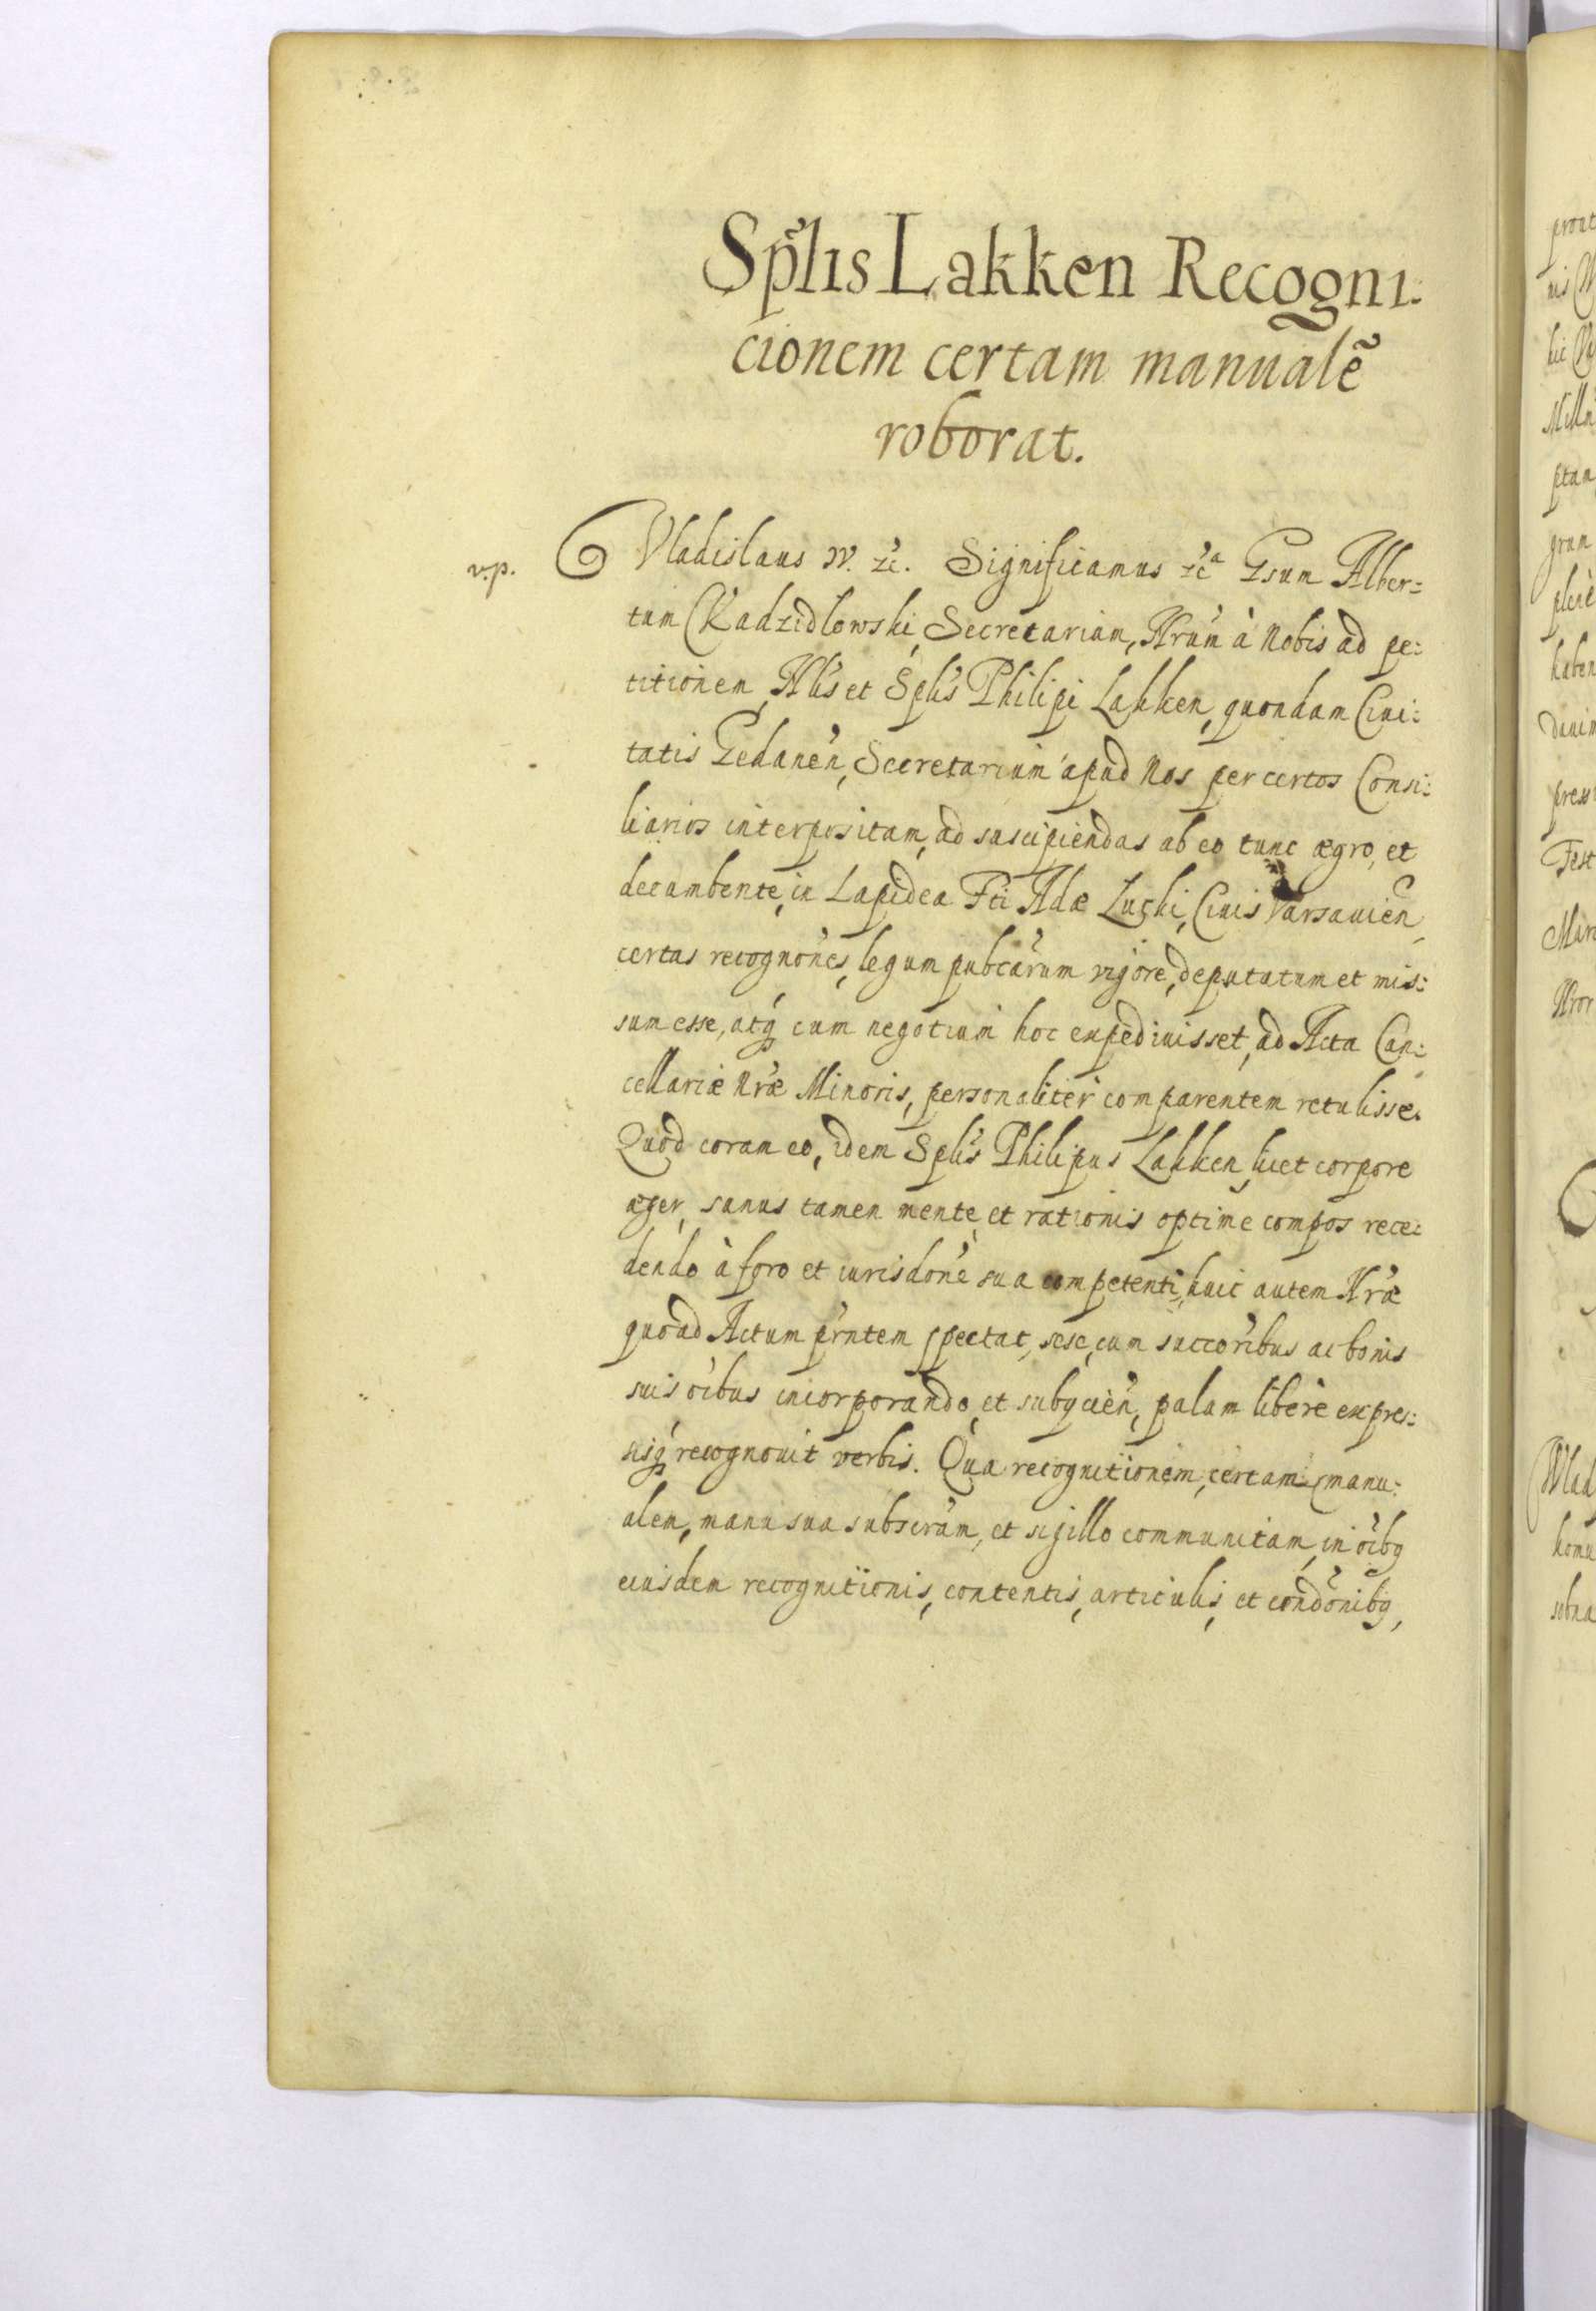 Sp̃lis Lakken Recogni:
cionem certam manualẽ
roborat.
v.p.
Vladislaus IV. &c. Significamus &cᵃ Gsum Alber=
tum Kadzidlowski, Secretarium, Nrum à Nobis ad pe:
titionem, Nlis et Splis Philipi Lakken, quondam Ciui:
tatis Gedanen, Secretarium apud Nos per certos Consi:
liarios interpositam, ad suscipiendas ab eo tunc ægro, et
decumbente, in Lapidea Fti Adæ Lucki, Ciuis Varsauien,
certas recognones, legum pubcarum vigore, deputatum et mis:
sum esse, atq cum negotium hoc expediuisset, ad Acta Can:
cellariæ Nræ Minoris, personaliter comparentem retulisse.
Quod coram eo, idem Splis Philipus Lakken, licet corpore
æger, sanus tamen mente, et rationis optime compos rece:
dendo à foro et iurisdone sua competenti, huic autem Nræ
quoad Actum prntem spectat, sese, cum succoribus ac bonis
suis oibus incorporando, et subycien, palam liberè expres:
sisq recognouit verbis. Qua recognitionem, certam manu:
alem, manu sua subscram, et sigillo communitam, in oibq
eiusdem recognitionis, contentis, articulis, et condonibq,
prout
nis
hic
ptam
grum
plere
haben
press
Fest
Mar
Nror
Wlad
homi